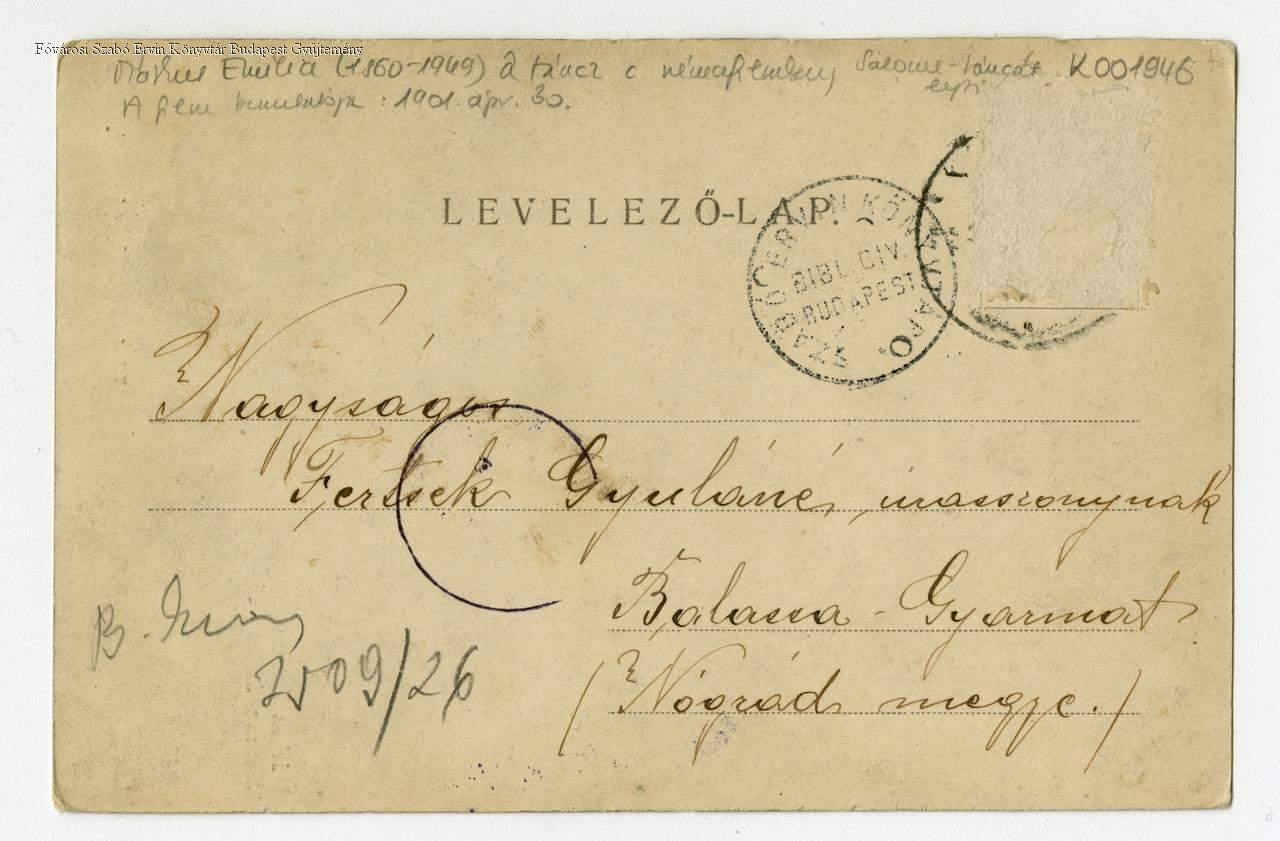 Fővárosi Szabó Ervin Könyvtár Budapest Gyűjtemény
Márkus Emilia (1860-1949) A táncz c Salome-táncát K001946
A film bemutatója: 1901. ápr. 30.
LEVELEZŐ-LAP.
SZABÓ ERVIN KÖNYVTÁR
BIBL. CIV.
BUDAPEST
Nagyságos
Fertsek Gyuláné urasszonynak
Balassa-Gyarmat
(Nógrád megye.)
B.
2509/26